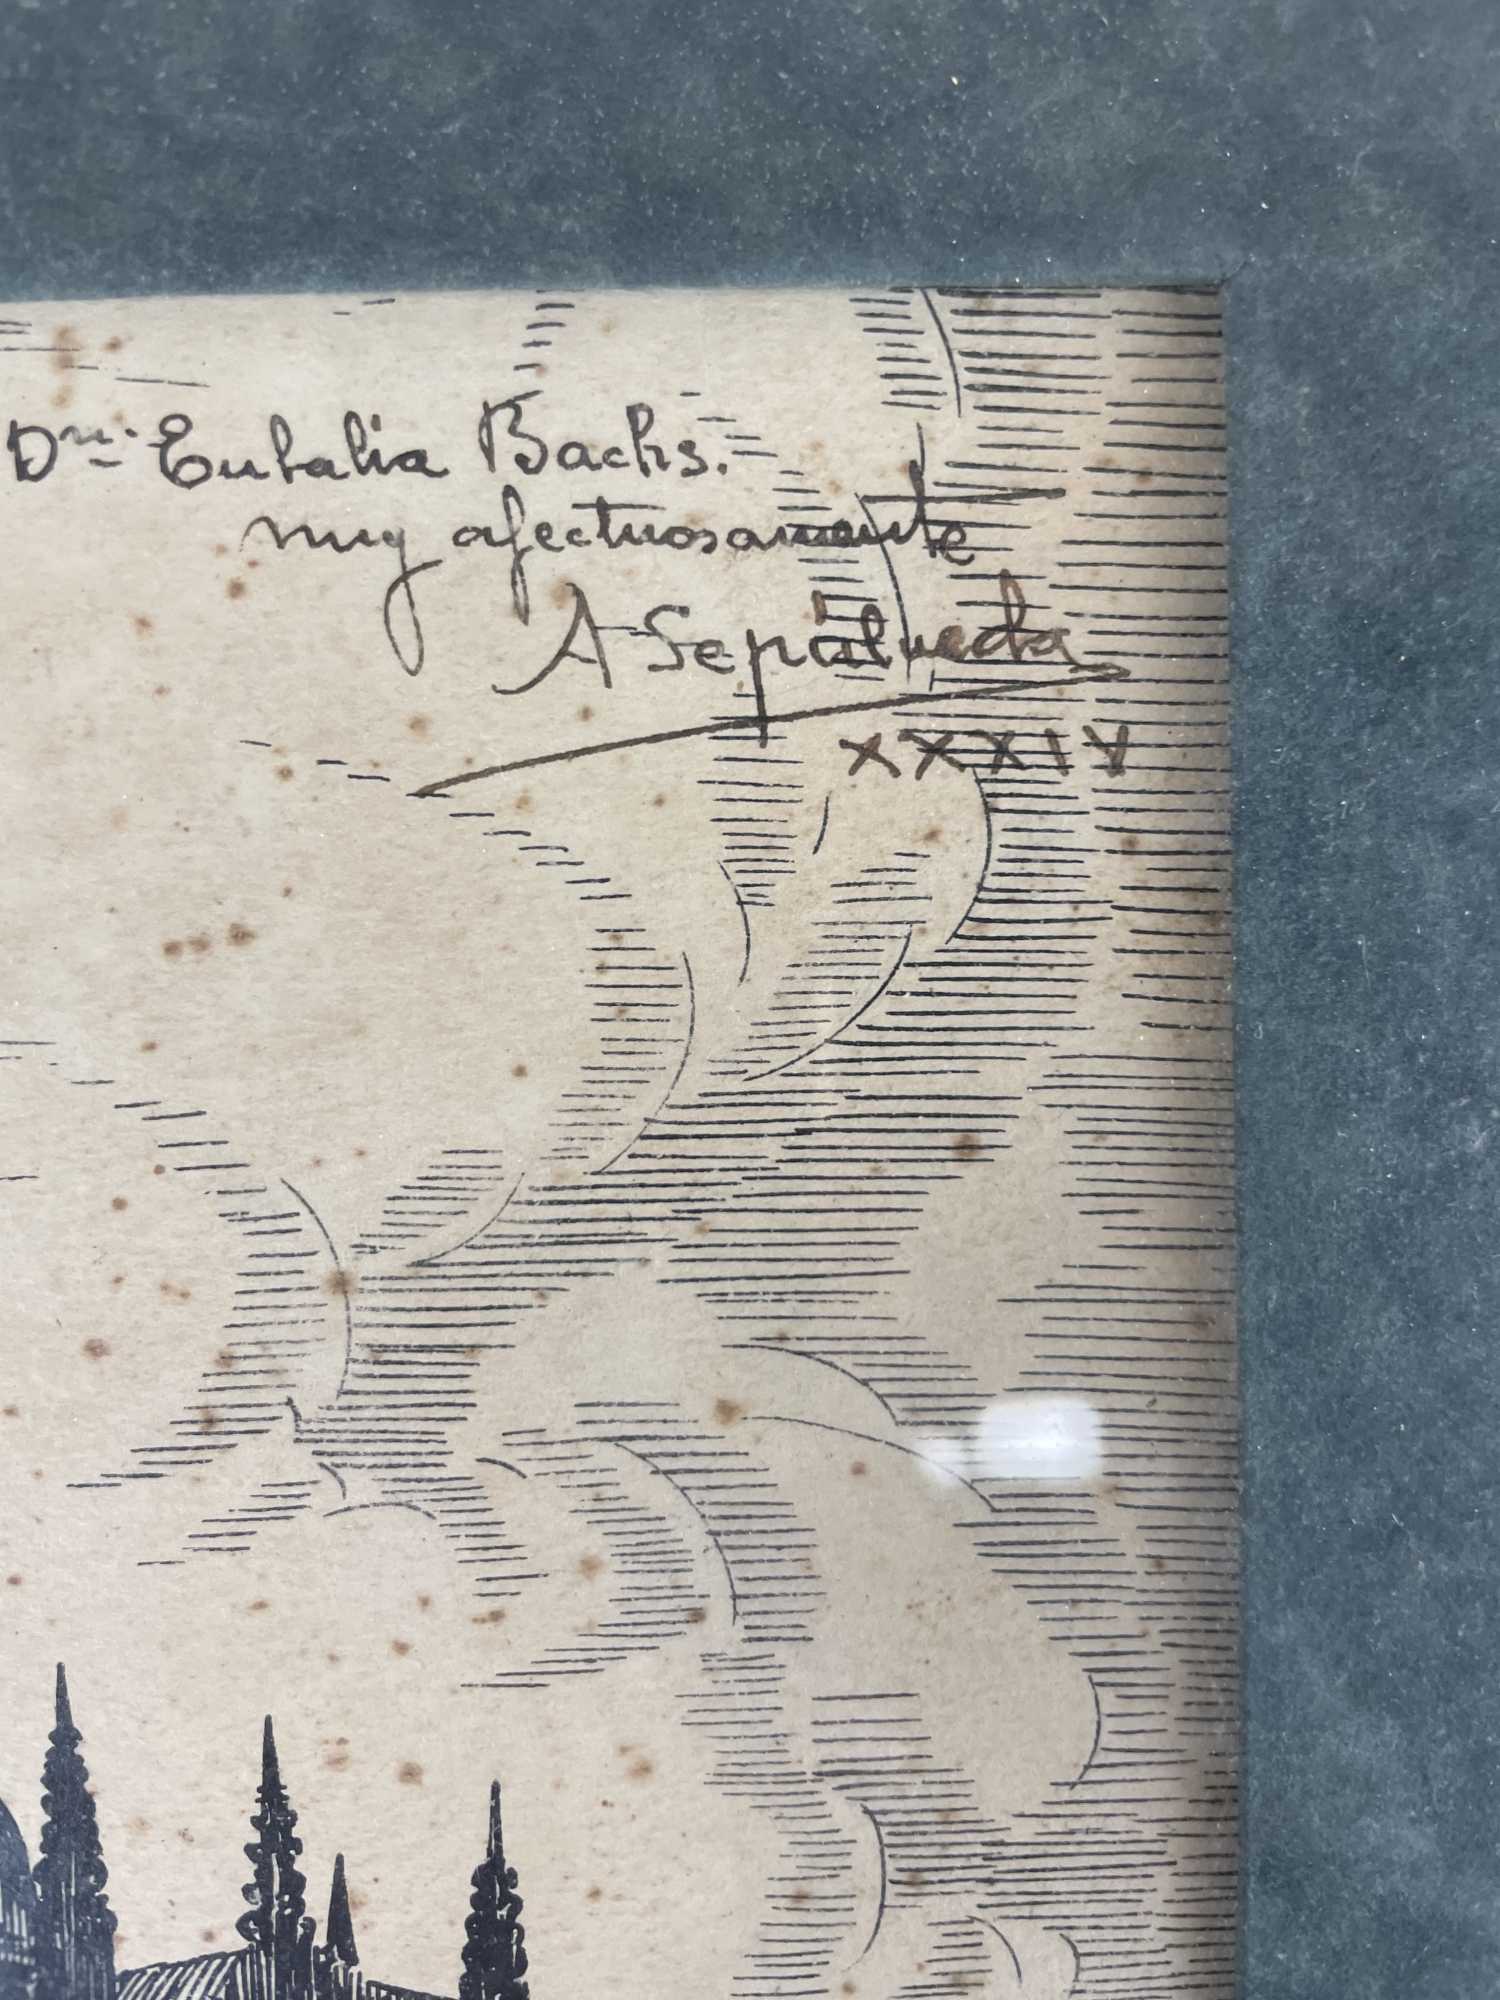 Dña. Eulalia Bachs.
muy afectuosamente
A Sepúlveda
XXXIV